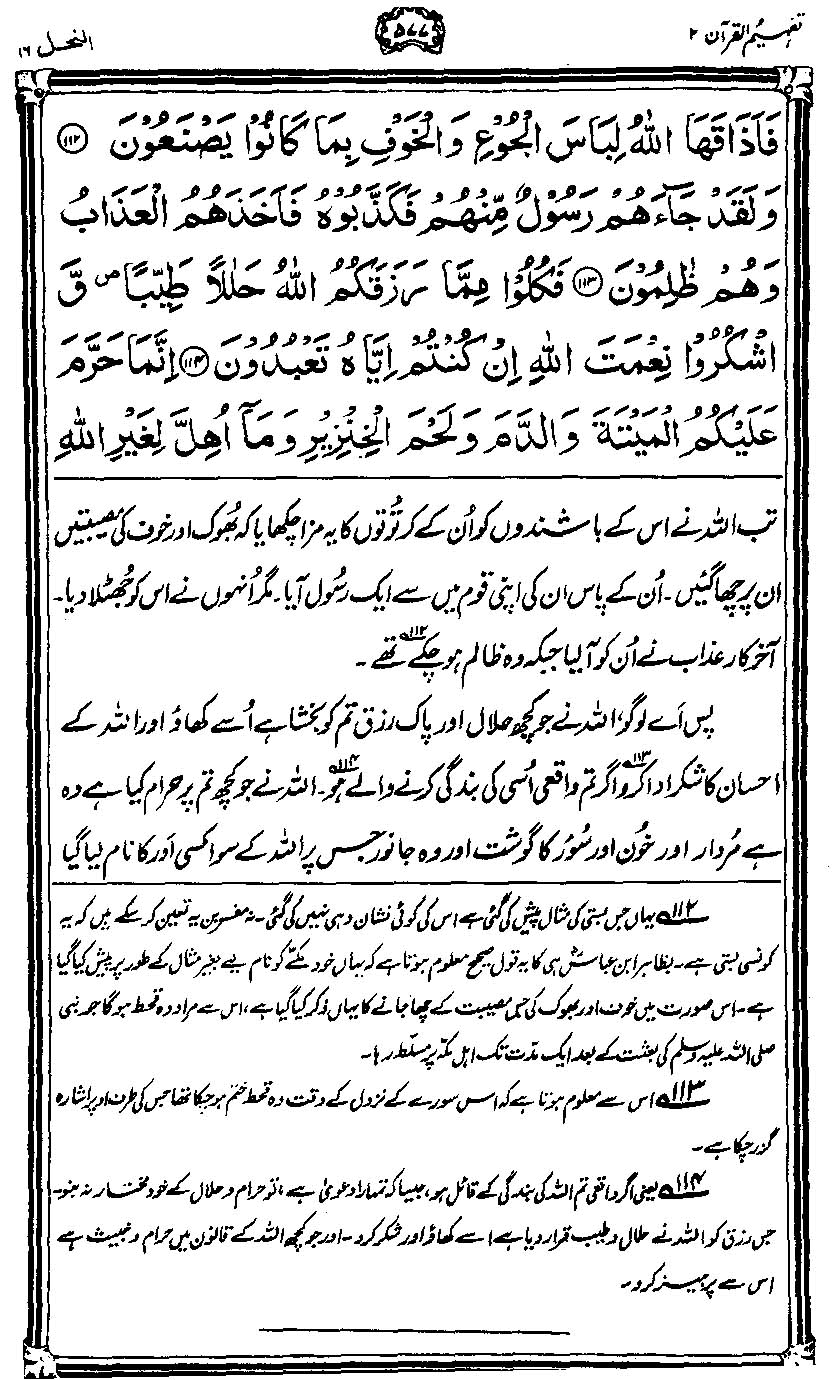 تفہیم القرآن ۲
۵۷۷
النحل ۱۶
فَاَذَاقَهَا اللّٰهُ لِبَاسَ الْجُوْعِ وَالْخَوْفِ بِمَا كَانُوْا يَصْنَعُوْنَ ﴿۱۱۲﴾
وَلَقَدْ جَآءَهُمْ رَسُوْلٌ مِّنْهُمْ فَكَذَّبُوْهُ فَاَخَذَهُمُ الْعَذَابُ
وَهُمْ ظٰلِمُوْنَ ﴿۱۱۳﴾ فَكُلُوْا مِمَّا رَزَقَكُمُ اللّٰهُ حَلٰلًا طَيِّبًا ص وَّ
اشْكُرُوْا نِعْمَتَ اللّٰهِ اِنْ كُنْتُمْ اِيَّاهُ تَعْبُدُوْنَ ﴿۱۱۴﴾ اِنَّمَا حَرَّمَ
عَلَيْكُمُ الْمَيْتَةَ وَالدَّمَ وَلَحْمَ الْخِنْزِيْرِ وَمَآ اُهِلَّ لِغَيْرِ اللّٰهِ
تب اللہ نے اس کے باشندوں کو اُن کے کرتُوتوں کا یہ مزا چکھایا کہ بُھوک اور خوف کی مصیبتیں
ان پر چھا گئیں۔ اُن کے پاس ان کی اپنی قوم میں سے ایک رسُول آیا۔ مگر اُنہوں نے اس کو جُھٹلا دیا۔
آخر کار عذاب نے اُن کو آ لیا جبکہ وہ ظالم ہو چکے تھے۱۱۲۔
پس اَے لوگو، اللہ نے جو کچھ حلال اور پاک رزق تم کو بخشا ہے اُسے کھاؤ اور اللہ کے
احسان کا شکر ادا کرو۱۱۳ اگر تم واقعی اُسی کی بندگی کرنے والے ہو۱۱۴۔ اللہ نے جو کچھ تم پر حرام کیا ہے وہ
ہے مُردار اور خُون اور سُؤر کا گوشت اور وہ جانور جس پر اللہ کے سوا کسی اَور کا نام لیا گیا
۱۱۲ یہاں جس بستی کی مثال پیش کی گئی ہے اس کی کوئی نشان دہی نہیں کی گئی۔ نہ مفسرین یہ تعین کر سکے ہیں کہ یہ
کونسی بستی ہے۔ بظاہر ابن عباسؓ ہی کا یہ قول صحیح معلوم ہوتا ہے کہ یہاں خود مکّے کو نام لیے بغیر مثال کے طور پر پیش کیا گیا
ہے۔ اس صورت میں خوف اور بھوک کی جس مصیبت کے چھا جانے کا یہاں ذکر کیا گیا ہے، اس سے مراد وہ قحط ہوگا جو نبی
صلی اللہ علیہ وسلم کی بعثت کے بعد ایک مدّت تک اہلِ مکّہ پر مسلّط رہا۔
۱۱۳ اس سے معلوم ہوتا ہے کہ اس سورے کے نزول کے وقت وہ قحط ختم ہو چکا تھا جس کی طرف اوپر اشارہ
گزر چکا ہے۔
۱۱۴ یعنی اگر واقعی تم اللہ کی بندگی کے قائل ہو، جیسا کہ تمہارا دعویٰ ہے، تو حرام و حلال کے خود مختار نہ بنو۔
جس رزق کو اللہ نے حلال و طیب قرار دیا ہے اسے کھاؤ اور شکر کرو۔ اور جو کچھ اللہ کے قانون میں حرام و خبیث ہے
اس سے پرہیز کرو۔